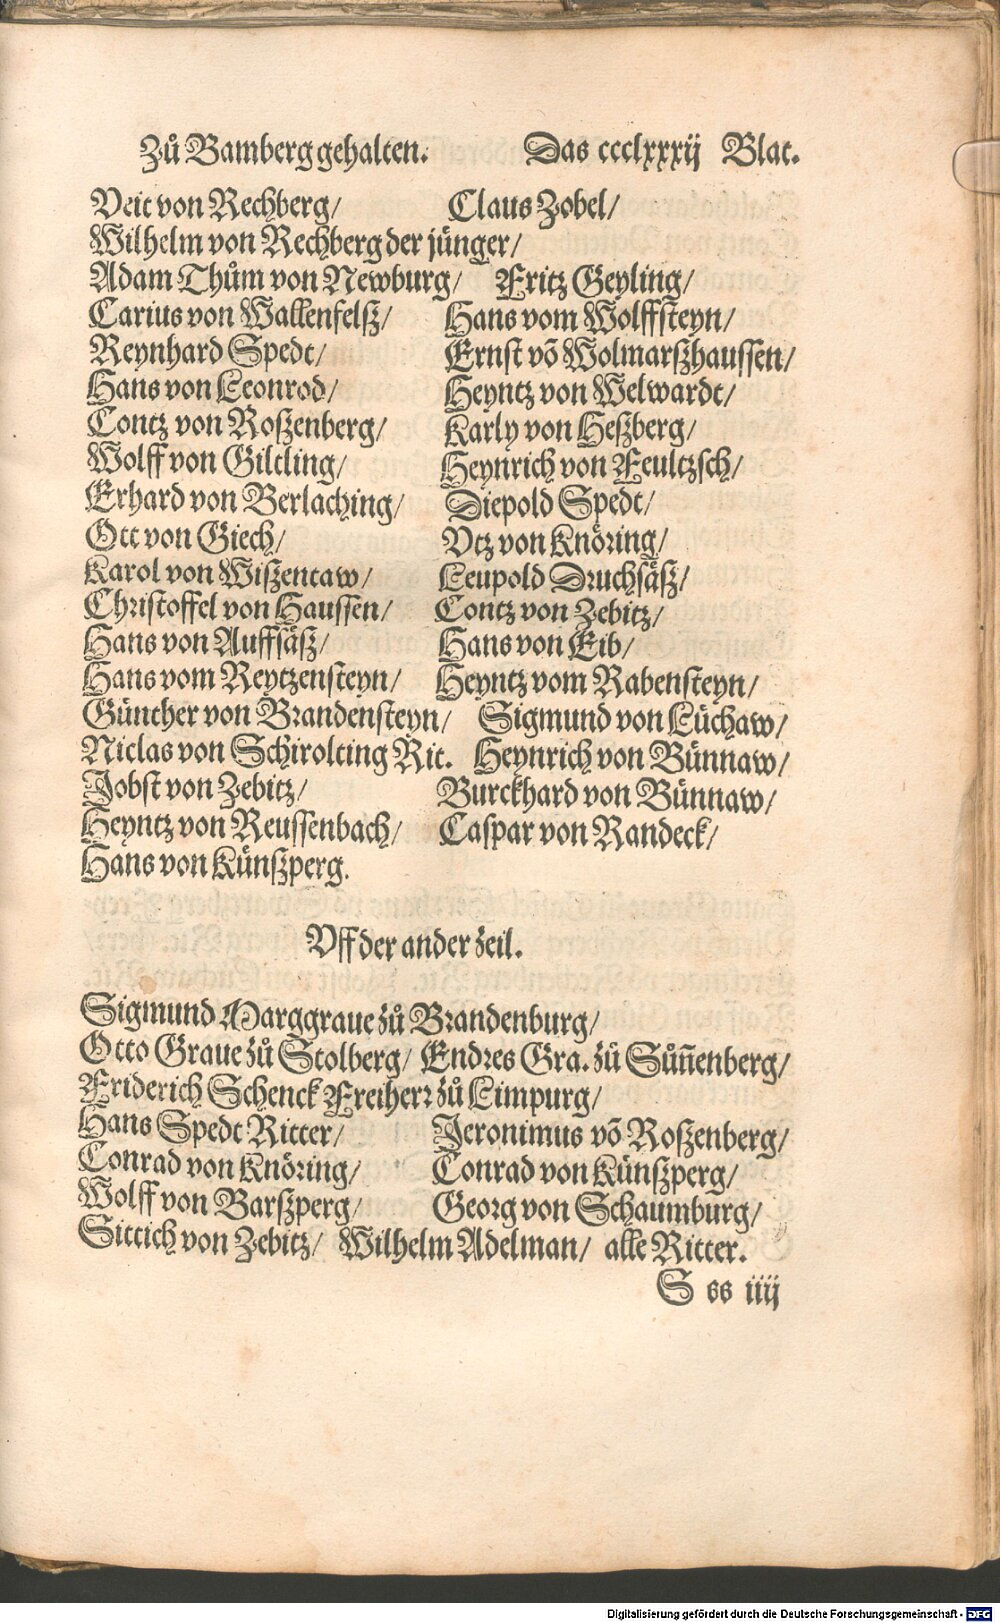 Zů Bamberg gehalten. Das ccclxxxij Blat.
Veit von Rechberg/ Claus Zobel/
Wilhelm von Rechberg der jünger/
Adam Thům von Newburg/ Fritz Geyling/
Carius von Wallenfelß/ Hans vom Wolffsteyn/
Reynhard Spedt/ Ernst võ Wolmarßhaussen/
Hans von Leonrod/ Heyntz von Welwardt/
Contz von Roßenberg/ Karly von Heßberg/
Wolff von Giltling/ Heynrich von Feultzsch/
Erhard von Berlaching/ Diepold Spedt/
Ott von Giech/ Vtz von Knöring/
Karol von Wißentaw/ Leupold Druchsäß/
Christoffel von Haussen/ Contz von Zebitz/
Hans von Auffsäß/ Hans von Eib/
Hans vom Reytzensteyn/ Heyntz vom Rabensteyn/
Günther von Brandensteyn/ Sigmund von Lüchaw/
Niclas von Schirolting Rit. Heynrich von Bünnaw/
Jobst von Zebitz/ Burckhard von Bünnaw/
Heyntz von Reussenbach/ Caspar von Randeck/
Hans von Künßperg.
Vff der ander zeil.
Sigmund Marggraue zů Brandenburg/
Otto Graue zů Stolberg/ Endres Gra. zů Sůñenberg/
Friderich Schenck Freiherr zů Limpurg/
Hans Spedt Ritter/ Jeronimus võ Roßenberg/
Conrad von Knöring/ Conrad von Künßperg/
Wolff von Barßperg/ Georg von Schaumburg/
Sittich von Zebitz/ Wilhelm Adelman/ alle Ritter.
S ss iiij
Digitalisierung gefördert durch die Deutsche Forschungsgemeinschaft - DFG